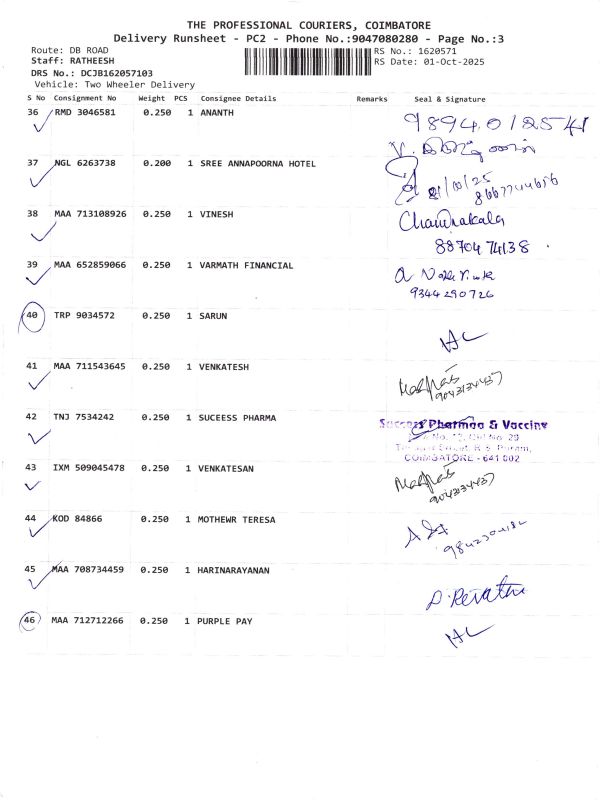 THE PROFESSIONAL COURIERS, COIMBATORE
Delivery Runsheet - PC2 - Phone No.:9047080280 - Page No.:3
Route: DB ROAD RS No.: 1620571
Staff: RATHEESH RS Date: 01-Oct-2025
DRS No.: DCJB162057103
Vehicle: Two Wheeler Delivery
S No Consignment No Weight PCS Consignee Details Remarks Seal & Signature
36 RMD 3046581 0.250 1 ANANTH 9894012541
37 NGL 6263738 0.200 1 SREE ANNAPOORNA HOTEL
38 MAA 713108926 0.250 1 VINESH Chandrakala
8870474138
39 MAA 652859066 0.250 1 VARMATH FINANCIAL
9344290726
40 TRP 9034572 0.250 1 SARUN
41 MAA 711543645 0.250 1 VENKATESH
9043134437
42 TNJ 7534242 0.250 1 SUCEESS PHARMA Success Pharmaa & Vaccine
COIMBATORE - 641 002
43 IXM 509045478 0.250 1 VENKATESAN
9043134437
44 KOD 84866 0.250 1 MOTHEWR TERESA
45 MAA 708734459 0.250 1 HARINARAYANAN P. Revathi
46 MAA 712712266 0.250 1 PURPLE PAY